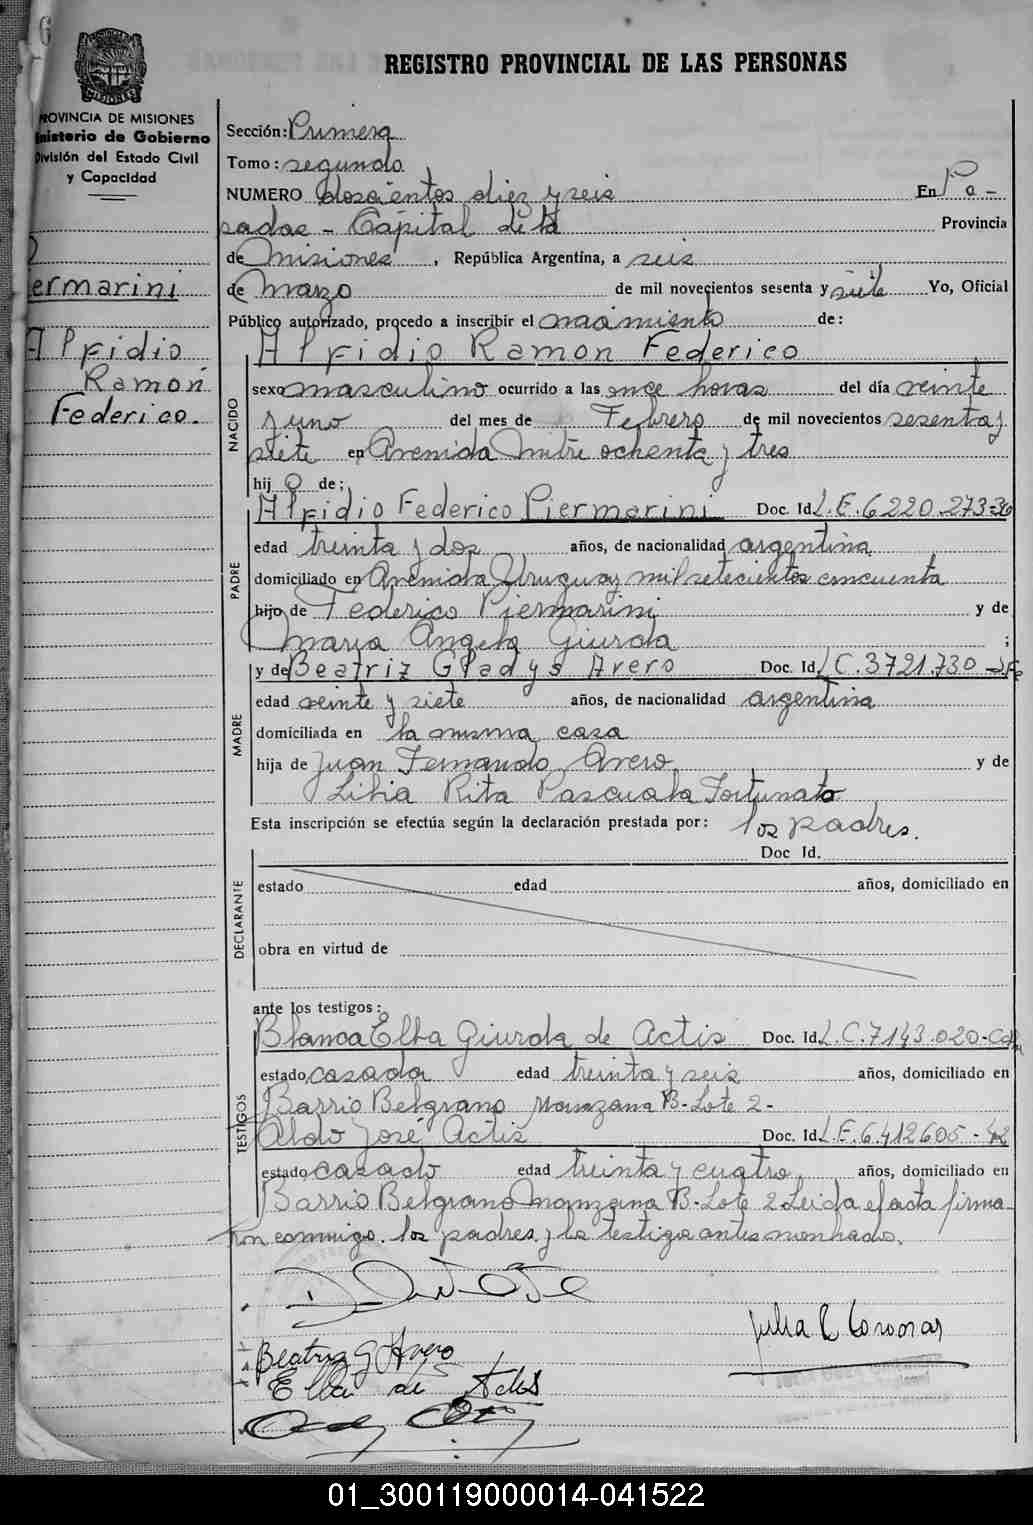 REGISTRO PROVINCIAL DE LAS PERSONAS
PROVINCIA DE MISIONES
Ministerio de Gobierno
División del Estado Civil
y Capacidad
ermarini
Alfidio
Ramon
Federico.
Sección: Primera
Tomo: segundo
NUMERO doscientos diez y seis En Po-
sadas - Capital de la Provincia
de Misiones, República Argentina, a seis
de Marzo de mil novecientos sesenta y siete Yo, Oficial
Público autorizado, procedo a inscribir el nacimiento de:
Alfidio Ramon Federico
NACIDO
sexo masculino ocurrido a las once horas del día veinte
y uno del mes de Febrero de mil novecientos sesenta y
siete en Avenida Mitre ochenta y tres
hijo de:
Alfidio Federico Piermarini Doc. Id. L.E. 6220.273-
PADRE
edad treinta y dos años, de nacionalidad argentina
domiciliado en Avenida Uruguay mil setecientos cincuenta
hijo de Federico Piermarini y de
Maria Angela Giurda ;
y de Beatriz Gladys Avero Doc. Id. L.C. 3721.730-
MADRE
edad veinte y siete años, de nacionalidad argentina
domiciliada en la misma casa
hija de Juan Fernando Avero y de
Lilia Rita Pascuala Fortunato
Esta inscripción se efectúa según la declaración prestada por: los padres.
Doc Id.
DECLARANTE
estado edad años, domiciliado en
obra en virtud de
ante los testigos:
Blanca Elba Giurda de Actis Doc. Id. L.C. 7143.020-
TESTIGOS
estado casada edad treinta y seis años, domiciliado en
Barrio Belgrano Manzana B-Lote 2-
Aldo José Actis Doc. Id. L.E. 6.412605-
estado casado edad treinta y cuatro años, domiciliado en
Barrio Belgrano Manzana B-Lote 2 Leida el acta firma-
ron conmigo. los padres y los testigo antes
Beatriz G Avero
Elba de Actis
Julia
01_300119000014-041522